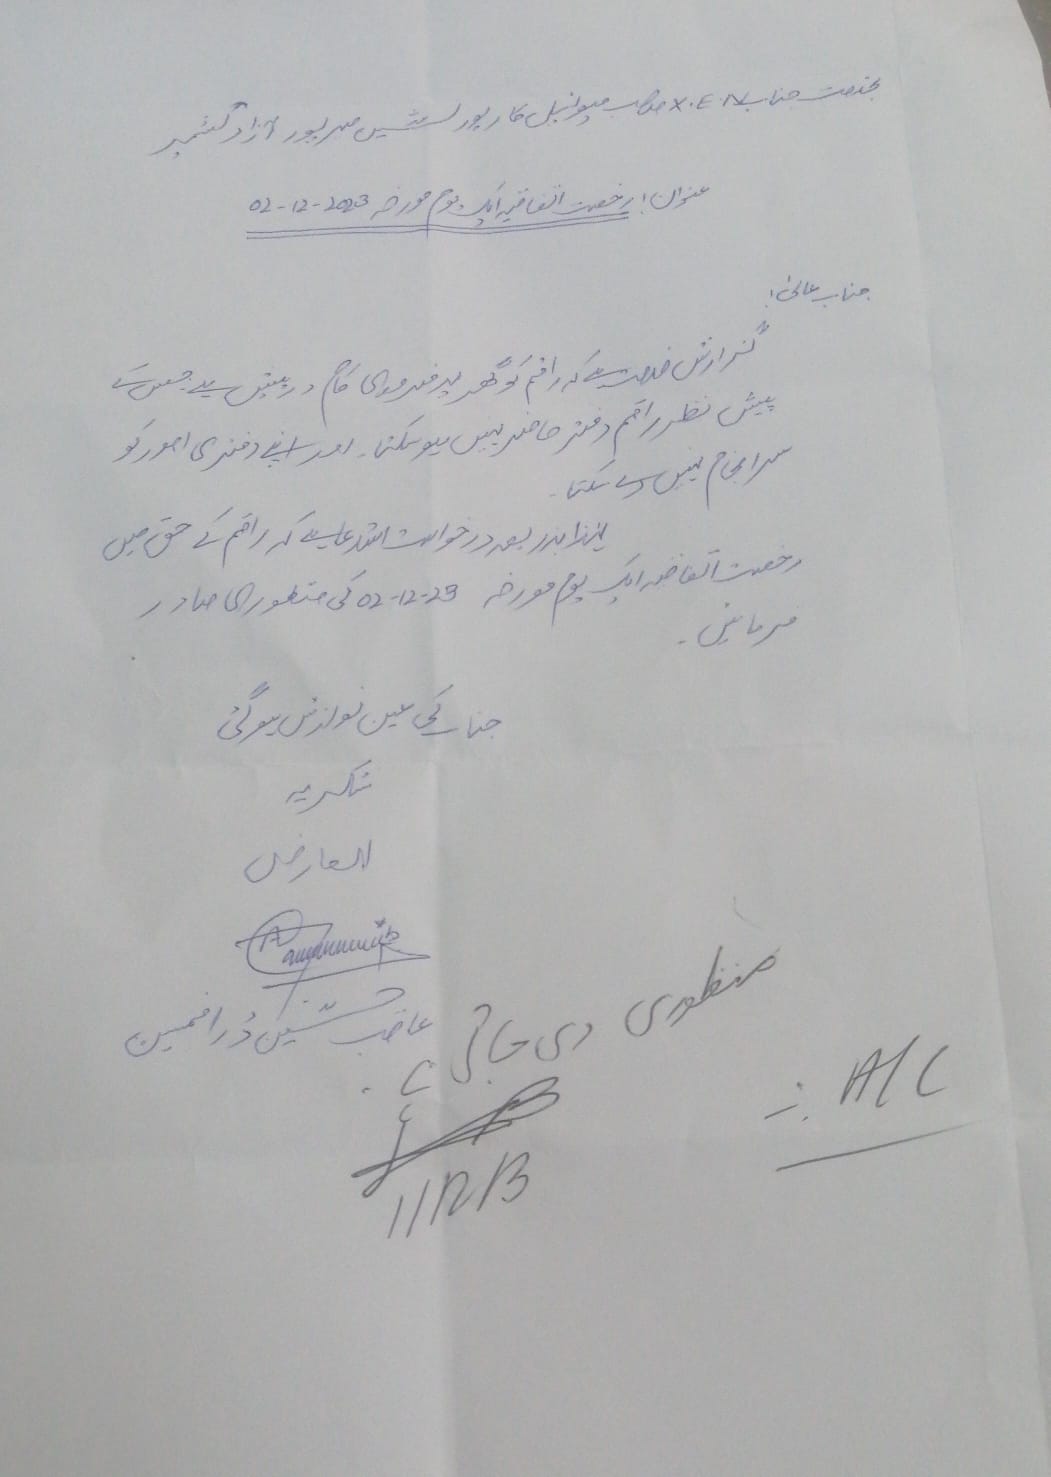 بخدمت جناب X.E.N صاحب میونسپل کارپوریشن میرپور آزاد کشمیر
عنوان: رخصت اتفاقیہ ایک یوم مورخہ 02-12-2023
جناب عالی!
گزارش خدمت ہے کہ راقم کو گھر پر ضروری کام درپیش ہے جس کے
پیش نظر راقم دفتر حاضر نہیں ہو سکتا۔ اور اپنے دفتری امور کو
سرانجام نہیں دے سکتا۔
لہذا بذریعہ درخواست استدعا ہے کہ راقم کے حق میں
رخصت اتفاقیہ ایک یوم مورخہ 02-12-23 کی منظوری صادر
فرمائیں۔
جناب کی عین نوازش ہوگی
شکریہ
العارض
ڈرافٹسمین
منظوری دی جاتی ہے۔
A/C